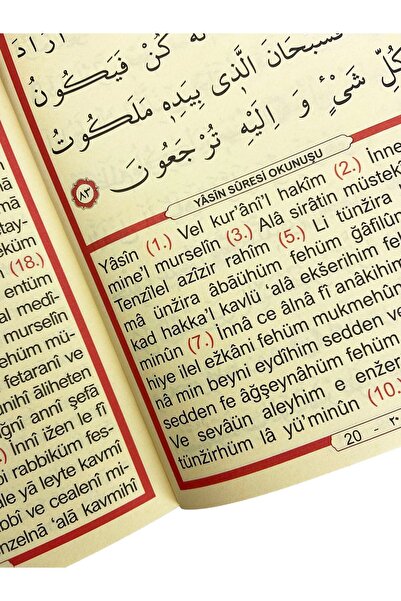 كُنْ فَيَكُونُ
فَسُبْحَانَ الَّذ۪ي بِيَدِه۪ مَلَكُوتُ
كُلِّ شَيْءٍ وَ اِلَيْهِ تُرْجَعُونَ
٨٣
YÂSİN SÛRESİ OKUNUŞU
Yâsîn (1.) Vel kur'âni'l hakîm (2.) İnne
mine'l murselîn (3.) Alâ sirâtin müstekî
Tenzîlel azîzir rahîm (5.) Li tünžira
mâ ünžira âbâühüm fehüm ğâfilûn
kad hakka'l kavlü 'alâ ekšerihim fe
minûn (7.) İnnâ ce âlnâ fî anâkihim
hiye ilel ežkâni fehüm mukmehûn
nâ min beyni eydîhim sedden ve
sedden fe âğşeynâhüm fehüm
Ve sevâün aleyhim e enžer
tünžirhüm lâ yü'minûn (10.)
20 - ٢٠
(18.)
entüm
al medî-
murselîn
ehüm mü-
fetaranî ve
unihî âliheten
uğni annî şefâ
İnnî ižen le fî
bi rabbiküm fes-
le yâ leyte kavmî
bbî ve cealenî mi-
nzelnâ 'alâ kavmihî